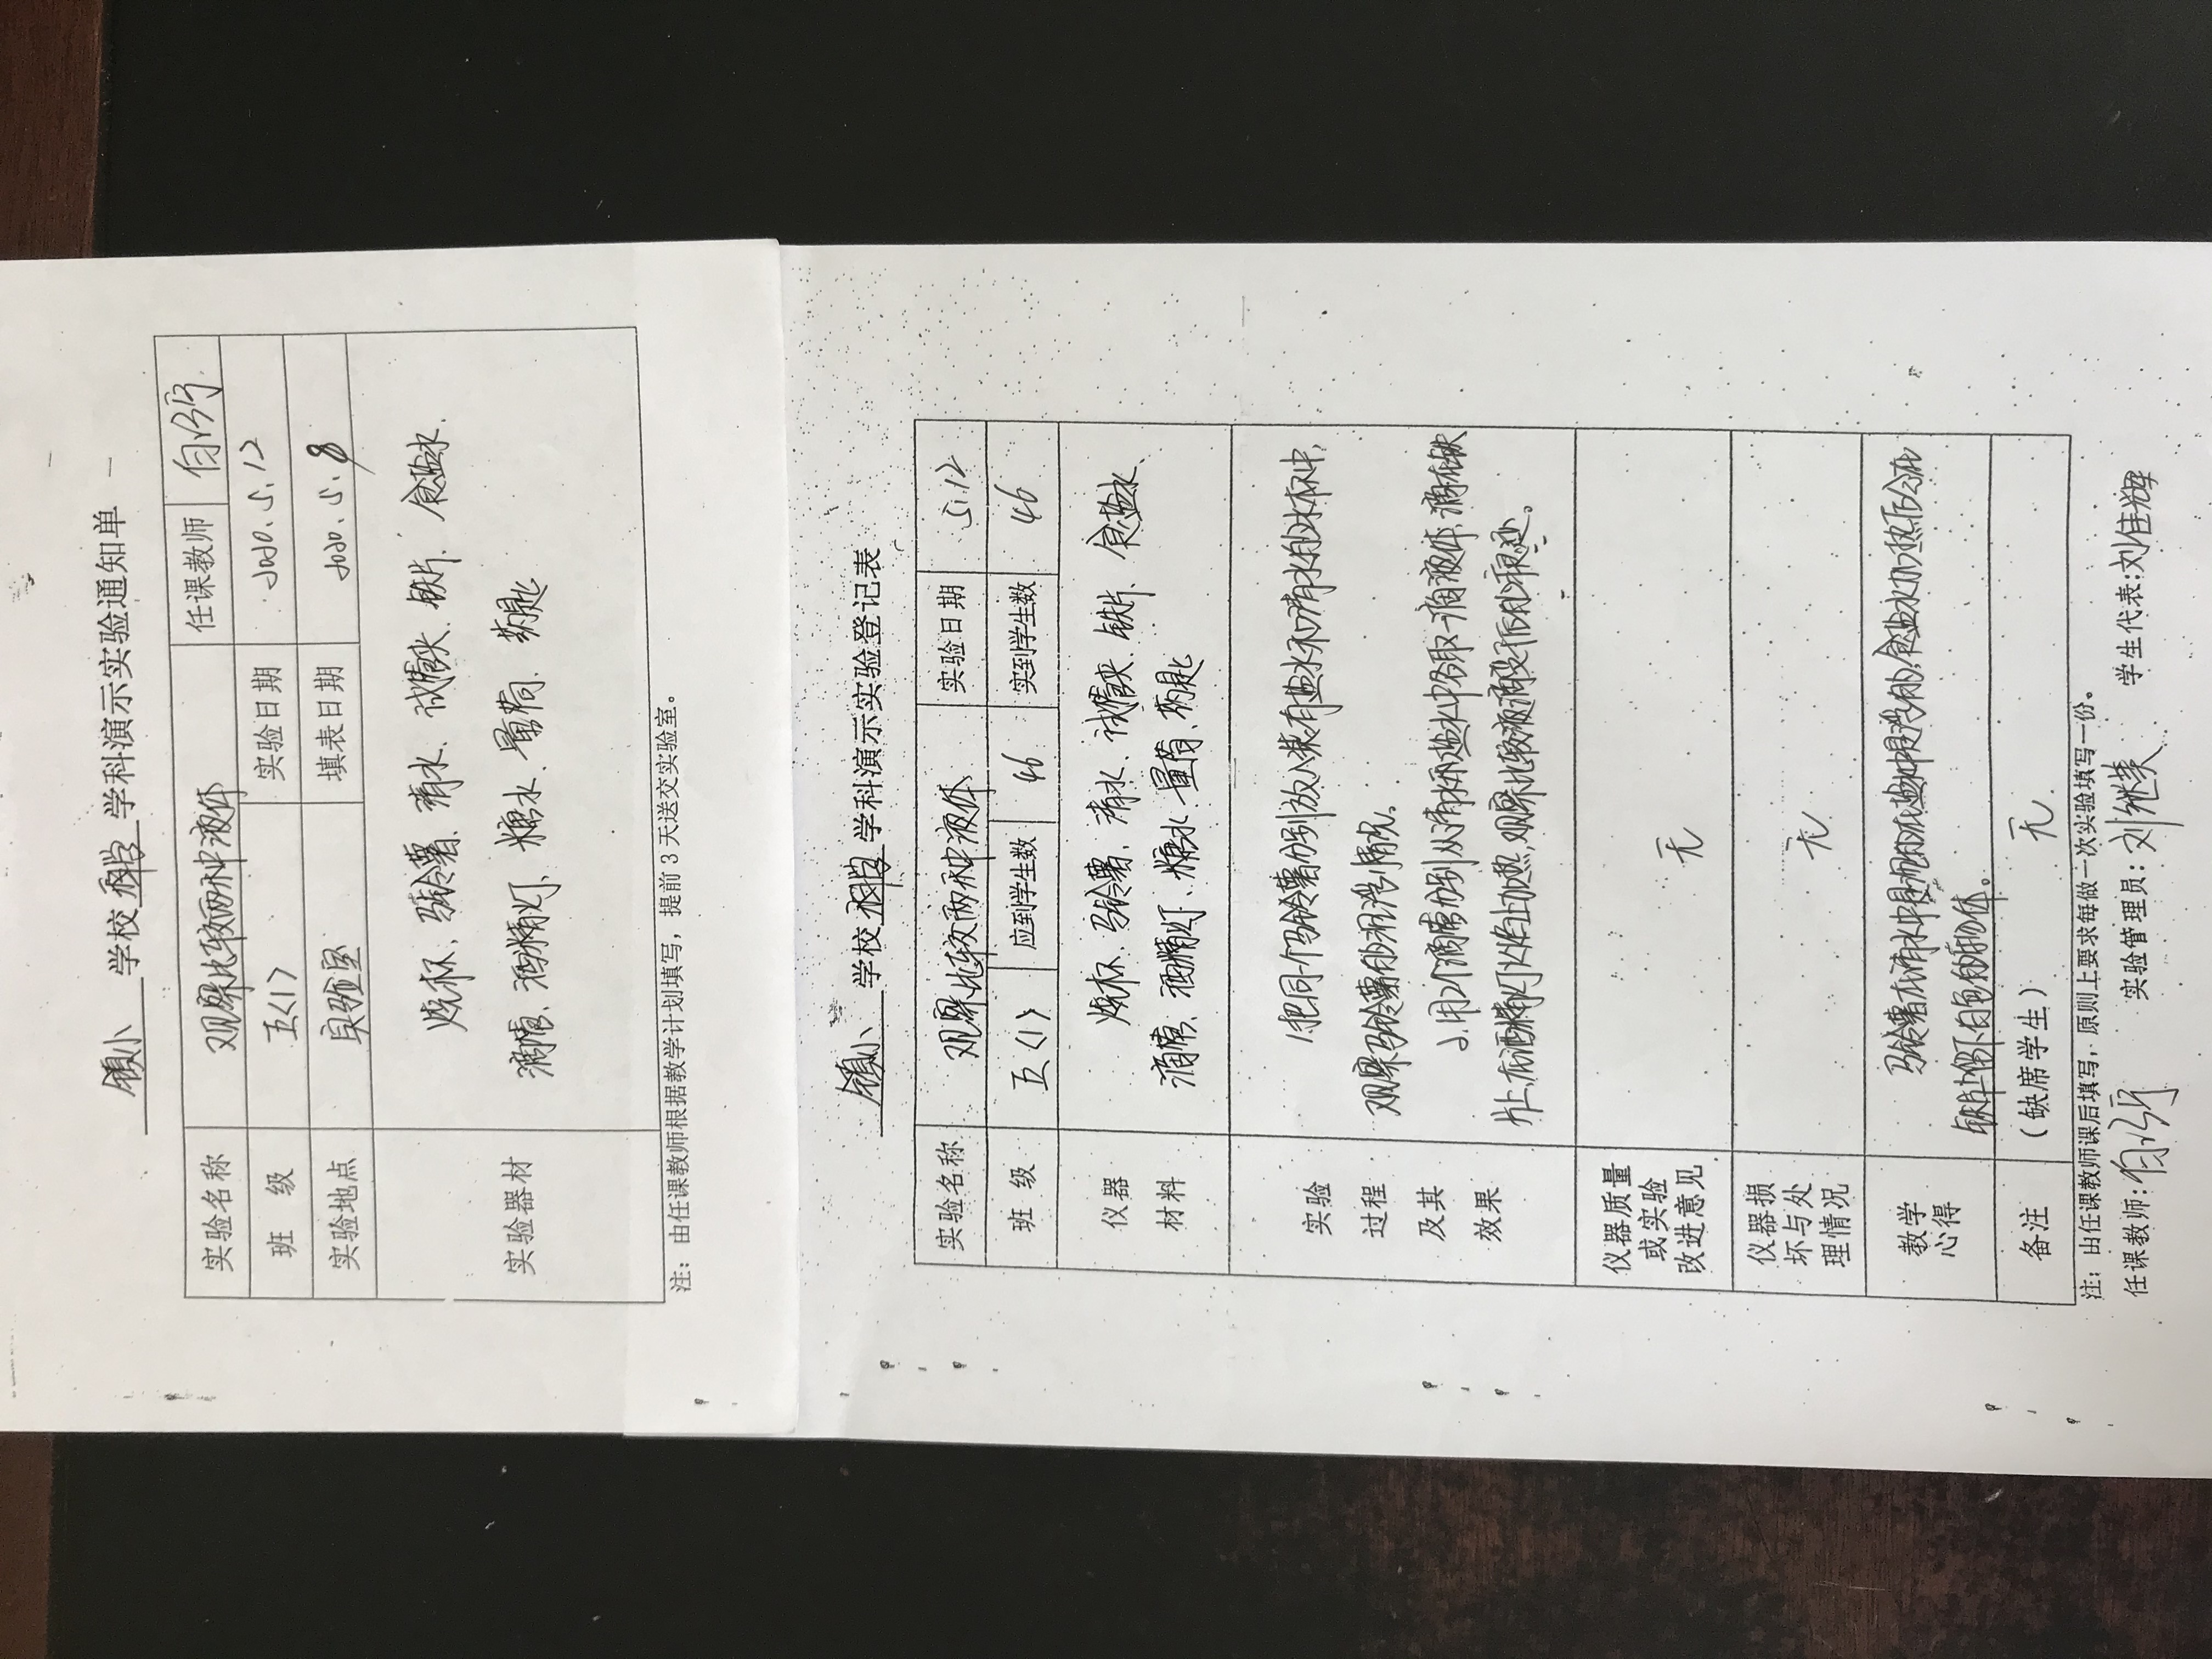 镇小 学校 科学 学科演示实验通知单
实验名称 观察比较两种液体 任课教师
班 级 五(1) 实验日期 2020.5.12
实验地点 实验室 填表日期 2020.5.8
实验器材
烧杯、马铃薯、清水、试管夹、铁片、食盐水、
滴管、酒精灯、糖水、量筒、药匙
注：由任课教师根据教学计划填写，提前3天送交实验室。
镇小 学校 科学 学科演示实验登记表
实验名称 观察比较两种液体 实验日期 5.12
班 级 五(1) 应到学生数 46 实到学生数 46
仪器
材料
烧杯、马铃薯、清水、试管夹、铁片、食盐水、
滴管、酒精灯、糖水、量筒、药匙
实验
过程
及其
效果
1.把同一个马铃薯分别放入装有盐水和清水的水杯中,
观察马铃薯的沉浮情况。
2.用2个滴管分别从清水和盐水中各取一滴液体,滴在铁
片上,在酒精灯火焰上加热,观察比较液滴没干后的痕迹。
仪器质量
或实验
改进意见
无
仪器器损
坏与处
理情况
无
教学
心得
马铃薯在清水中是沉的,在盐水中是浮的,食盐水加热后会在
铁片上留下白色的物体。
备注 (缺席学生) 无.
注：由任课教师课后填写，原则上要求每做一次实验填写一份。
任课教师： 实验管理员：刘继英 学生代表：刘佳辉